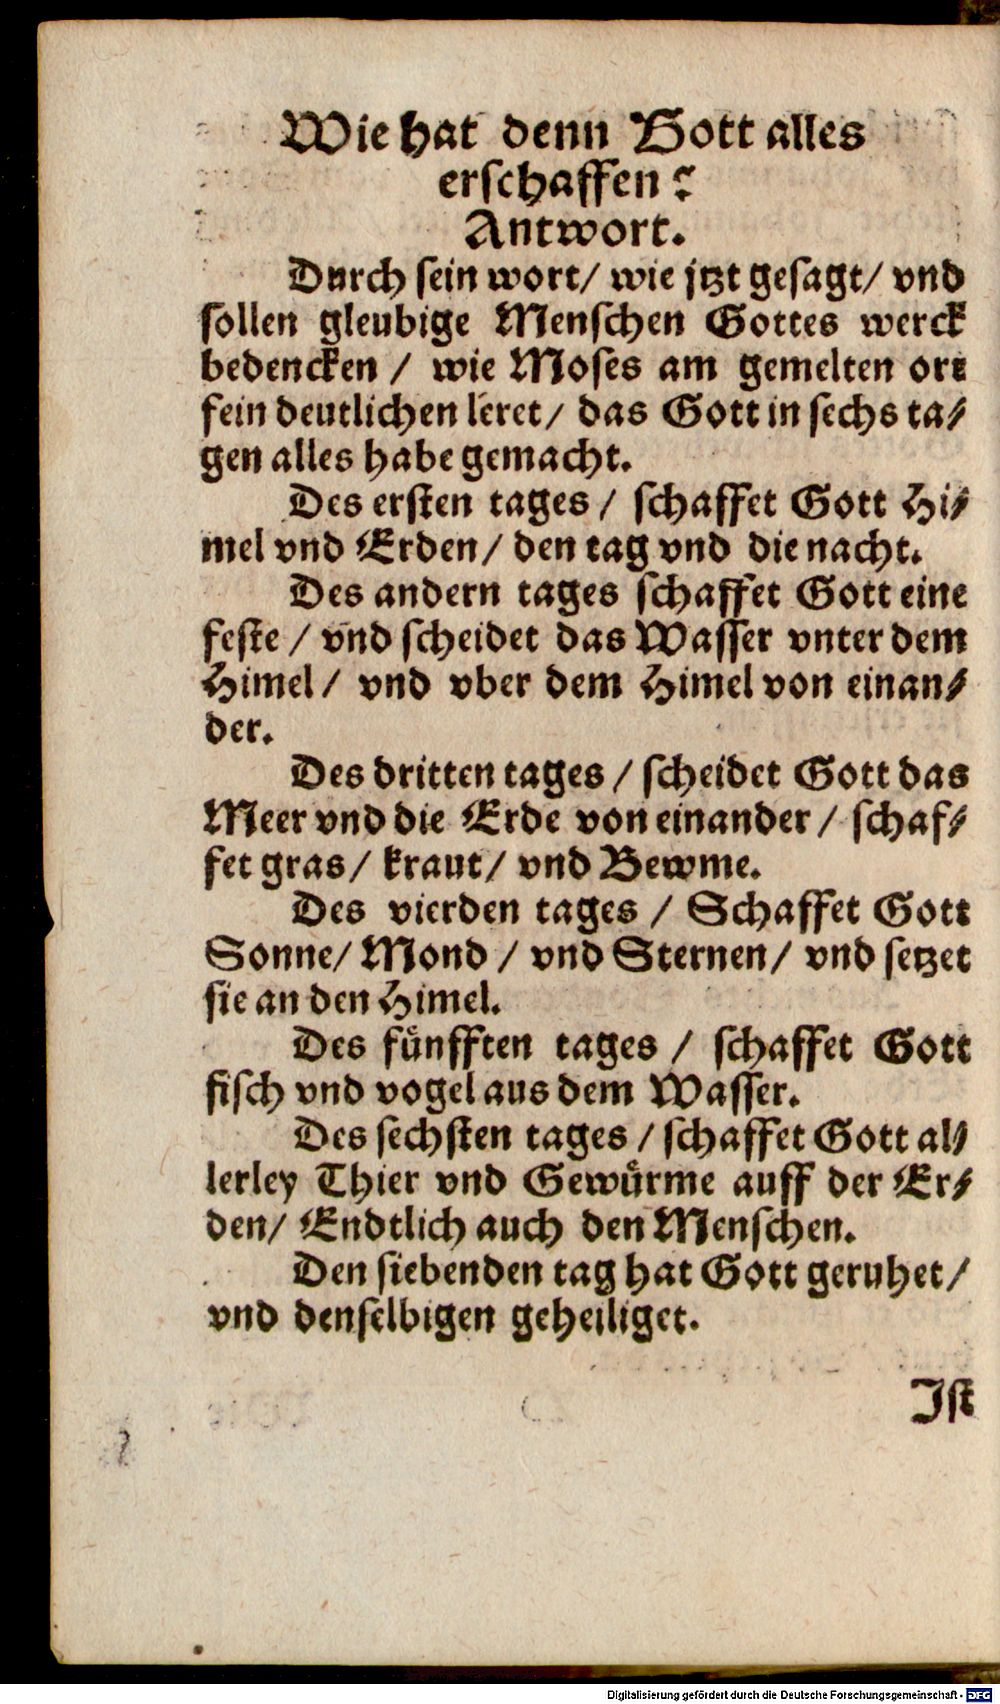 Wie hat denn Gott alles
erschaffen?
Antwort.
Durch sein wort/ wie jtzt gesagt/ vnd
sollen gleubige Menschen Gottes werck
bedencken / wie Moses am gemelten ort
fein deutlichen leret/ das Gott in sechs ta⸗
gen alles habe gemacht.
Des ersten tages / schaffet Gott Hi⸗
mel vnd Erden/ den tag vnd die nacht.
Des andern tages schaffet Gott eine
feste / vnd scheidet das Wasser vnter dem
Himel/ vnd vber dem Himel von einan⸗
der.
Des dritten tages / scheidet Gott das
Meer vnd die Erde von einander / schaf⸗
fet gras/ kraut/ vnd Bewme.
Des vierden tages / Schaffet Gott
Sonne/ Mond / vnd Sternen/ vnd setzet
sie an den Himel.
Des fuͤnfften tages / schaffet Gott
fisch vnd vogel aus dem Wasser.
Des sechsten tages / schaffet Gott al⸗
lerley Thier vnd Gewuͤrme auff der Er⸗
den/ Endtlich auch den Menschen.
Den siebenden tag hat Gott geruhet/
vnd denselbigen geheiliget.
Ist
Digitalisierung gefördert durch die Deutsche Forschungsgemeinschaft - DFG